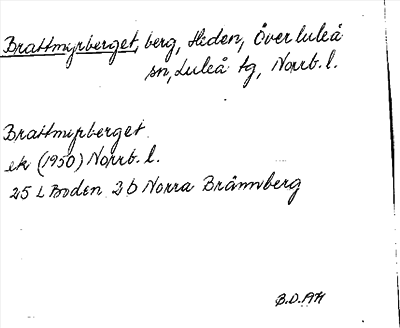 Brattmyrberget, berg, Heden, Överluleå
sn, Luleå tg, Norrb. l.
Brattmyrberget
ek (1950) Norrb. l.
25 L Boden 2 b Norra Brännberg
B.D.AH